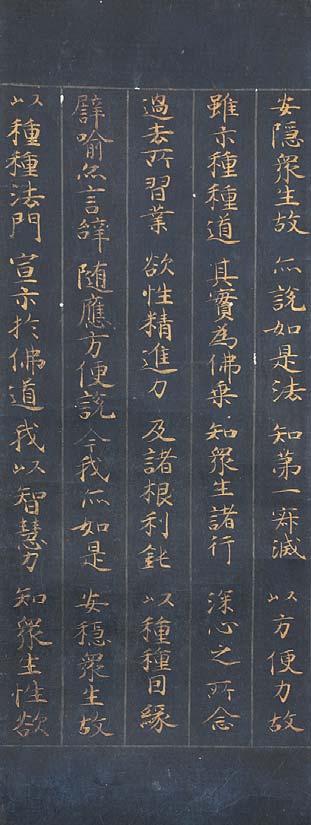 安隱眾生故 亦說如是法 知第一寂滅 以方便力故
雖示種種道 其實為佛乘 知眾生諸行 深心之所念
過去所習業 欲性精進力 及諸根利鈍 以種種因緣
譬喻亦言辭 隨應方便說 今我亦如是 安穩眾生故
以種種法門 宣示於佛道 我以智慧力 知眾生性欲